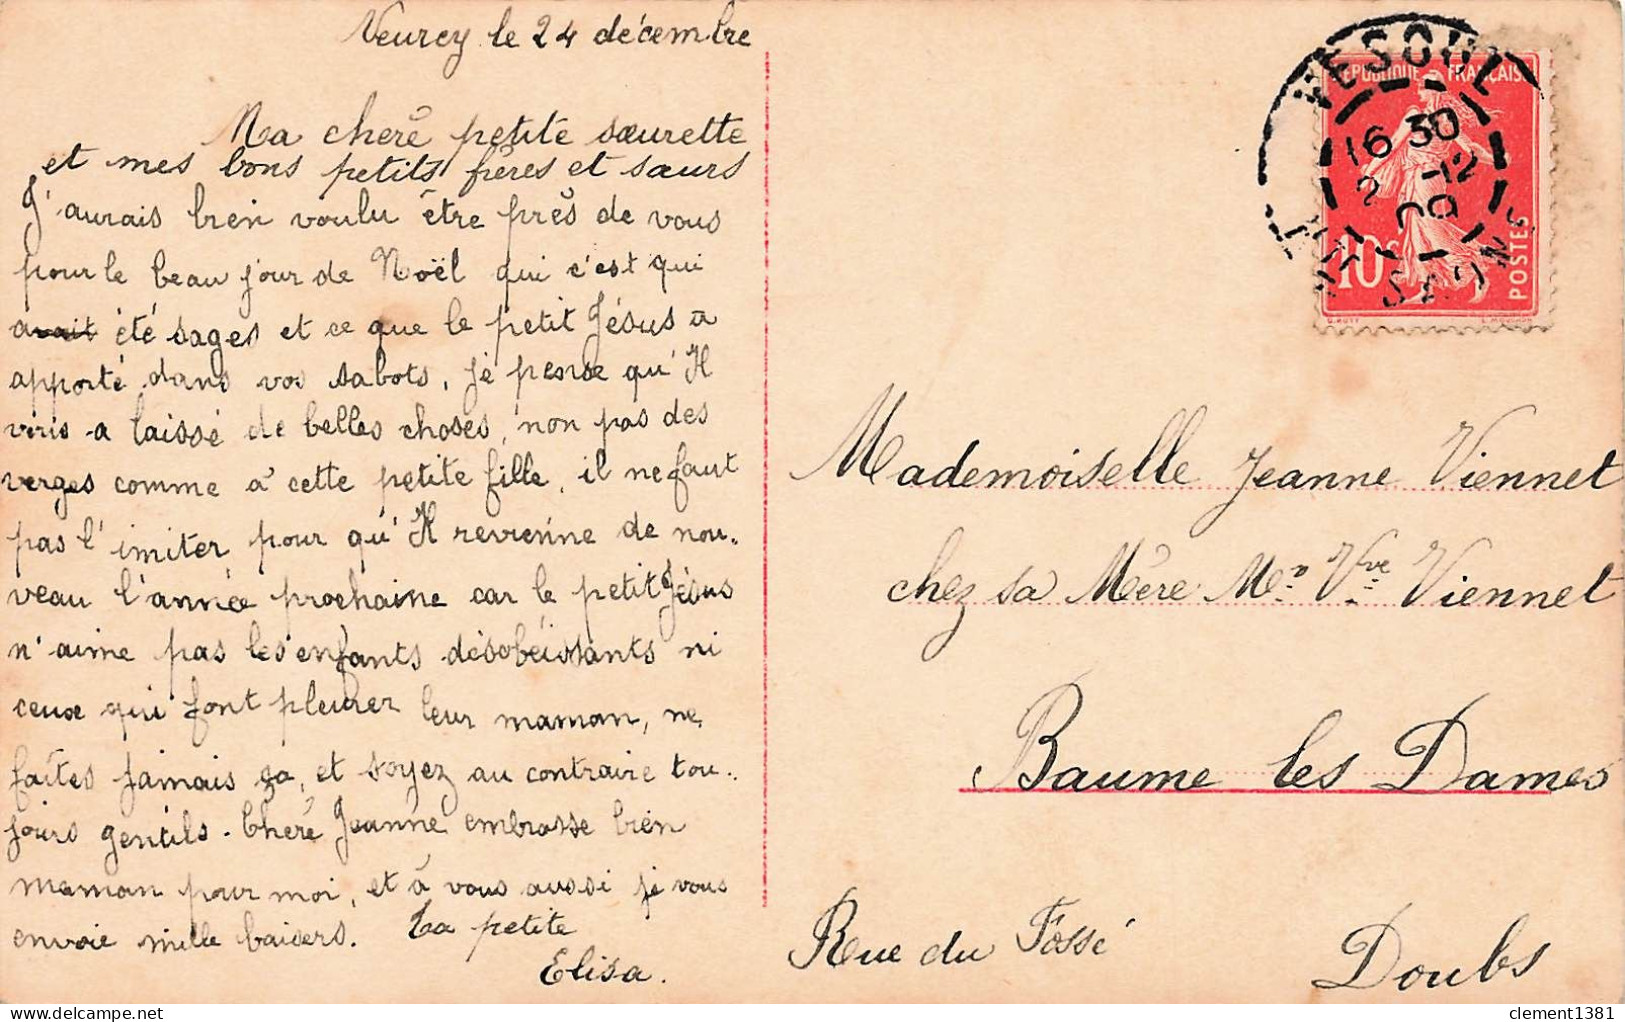 Veurey le 24 décembre
Ma cherè petite sœurette
et mes bons petits frères et sœurs
J'aurais bien voulu être près de vous
pour le beau jour de Noël qui c'est qui
avait été sages et ce que le petit Jésus a
apporté dans vos sabots, je pense qu'Il
vous a laissé de belles choses, non pas des
verges comme à cette petite fille, il ne faut
pas l'imiter pour qu'Il revienne de nou-
veau l'année prochaine car le petit Jésus
n'aime pas les enfants désobéissants ni
ceux qui font pleurer leur maman, ne
faites jamais ça, et soyez au contraire tou-
jours gentils. Cherè Jeanne embrasse bien
maman pour moi, et à vous aussi je vous
envoie mille baisers. Ta petite
Elisa.
VESOUL
16 30
2 -12
09
REPUBLIQUE FRANÇAISE
10c
POSTES
Mademoiselle Jeanne Viennet
chez sa Mère Me Vve Viennet
Baume les Dames
Rue du Fossé Doubs
clement1381